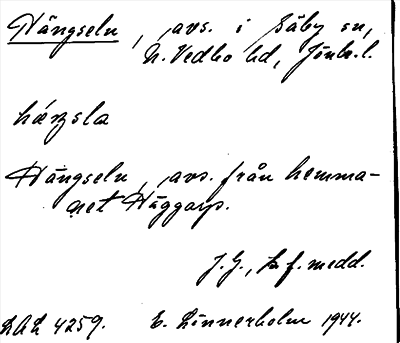 Hängseln, avs. i Säby sn,
N. Vedbo hd, Jönk. l.
hæŋsla
Hängseln, avs. från hemma-
net Häggarp.
J. G., f. medd.
DAL 4259. E. Linnerholm 1944.